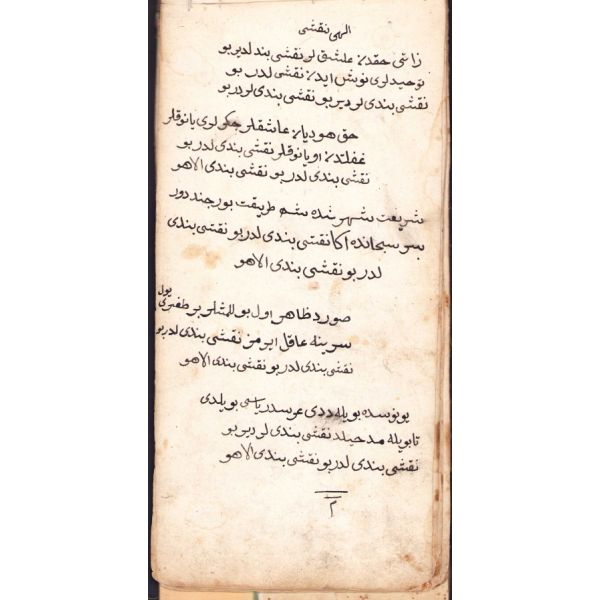 الهی نقشی
زاتی حقدن عاشق لر نقشی بند لدیر بو
توحیدلری نوش ایدن نقشی لدر بو
نقشی بندی لر دیر بو نقشی بندی لر در بو
حق هو دیان عاشقلر جکرلری یانوقلر
غفلتدن اویانوقلر نقشی بندی لدر بو
نقشی بندی لدر بو نقشی بندی الاهو
شریعت شهر شده طریقت بور جندر دور
سر سبحانده نقشی بندی لدر بو نقشی بندی
لدر بو نقشی بندی الاهو
صورد ظاهر اول بو بر یول
سرینه عاقل ایرمز نقشی بندی لدر بو
نقشی بندی لدر بو نقشی بندی الاهو
یونوسده بویله ددی بویلدی
تا بویله نقشی بندی لر دیر بو
نقشی بندی لدر بو نقشی بندی الاهو
م